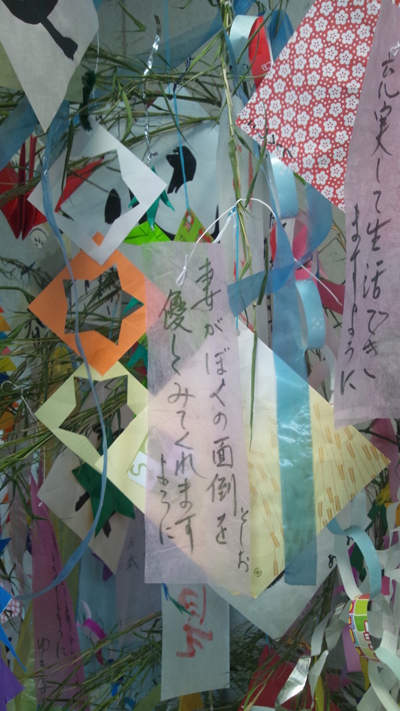 充実して生活でき
ますように
妻がぼくの面倒を
優しくみてくれます
ように
としお